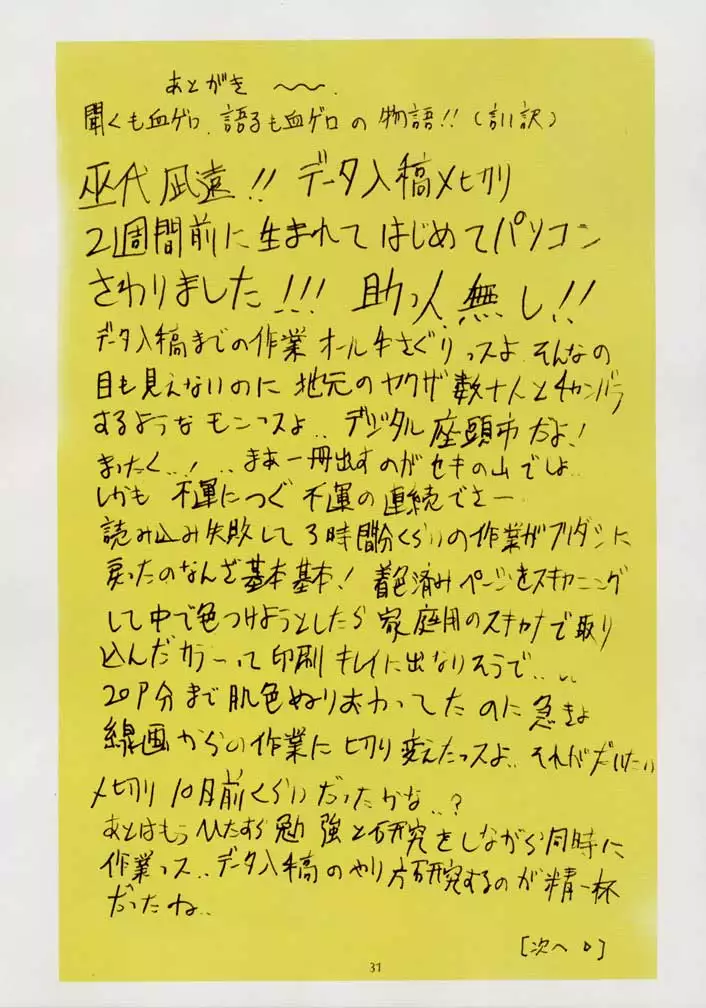 あとがき 〜〜.
聞くも血ゲロ、語るも血ゲロの物語!!(言い訳)
巫代凪遠!! データ入稿〆切り
2週間前に生まれてはじめてパソコン
さわりました!!! 助っ人無し!!
データ入稿までの作業オール手さぐりっスよ そんなの
目も見えないのに地元のヤクザ数十人とチャンバラ
するようなモンっスよ.. デジタル座頭市だよ!
まったく..! ..まあ一冊出すのがセキの山でしょ..
しかも不運につぐ不運の連続でさー
読み込み失敗して3時間分くらいの作業がフリダシに
戻ったのなんざ基本基本! 着色済みページをスキャニング
して中で色つけようとしたら家庭用のスキャナで取り
込んだカラーって印刷キレイに出なりそうで..
20P分まで肌色ぬりおわってたのに急きょ
線画からの作業に切り変えたっスよ.. それがだいたい
〆切り10日前くらいだったかな..?
あとはもうひたすら勉強と研究をしながら同時に
作業っス.. データ入稿のやり方研究するのが精一杯
だったね..
[次へ▷]
31